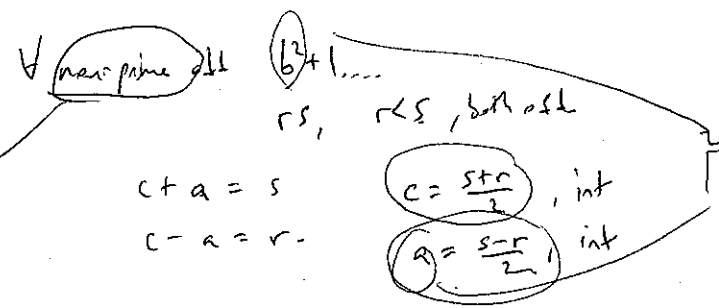 ∀ non-prime odd b²+1....
rs, r<s, both odd
c+a = s c = (s+r)/2, int
c-a = r. a = (s-r)/2, int